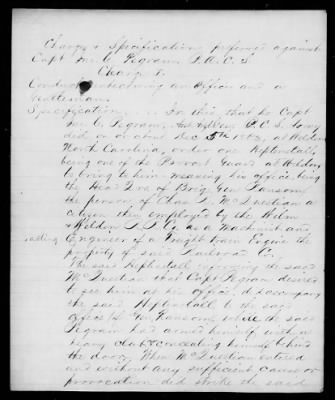 Charge & Specification, preferred against
Capt Pegram, A.A.C.S
Charge 1.
Conduct unbecoming an Officer and a
Gentleman.
Specification In this, that he Capt
Pegram, C.S. Army
did, on or about Dec 5th 1863, at Weldon
North Carolina, order one Heptinstall,
being one of the Provost Guard at Weldon
to bring to him meaning his office being
the Head Qrs of Brig Gen Ransom,
the person of Chas McQuestian a
citizen then employed by the Wilm
& Weldon R R Co as a Machinist and
acting Engineer of a Freight train Engine the
property of said Railroad Co.
The said Heptinstall, informing the said
McQuestian that Capt Pegram desired
to see him at his office. Accompany
the said Heptinstall to the said
office of Gen Ransom, while the said
Pegram had armed himself with a
heavy club & concealing himself behind
the door, When McQuestian entered
and without any sufficient cause or
provocation did strike the said